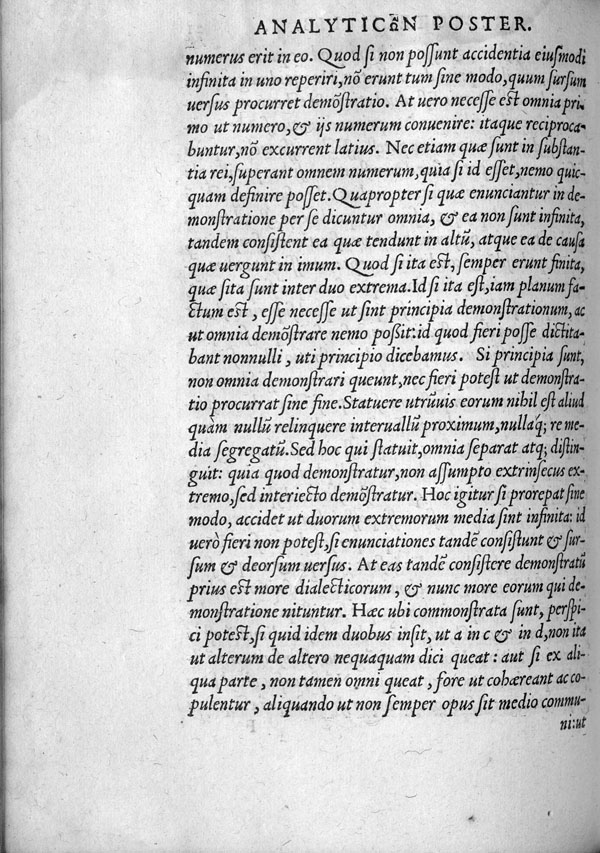 ANALYTICωN POSTER.
numerus erit in eo. Quod si non possunt accidentia eiusmodi
infinita in uno reperiri, nō erunt tum sine modo, quum sursum
uersus procurret demōstratio. At uero necesse est omnia pri-
mo ut numero, & ijs numerum conuenire: itaque reciproca-
buntur, nō excurrent latius. Nec etiam quæ sunt in substan-
tia rei, superant omnem numerum, quia si id esset, nemo quic-
quam definire posset. Quapropter si quæ enunciantur in de-
monstratione per se dicuntur omnia, & ea non sunt infinita,
tandem consistent ea quæ tendunt in altū, atque ea de causa
quæ uergunt in imum. Quod si ita est, semper erunt finita,
quæ sita sunt inter duo extrema. Id si ita est, iam planum fa-
ctum est, esse necesse ut sint principia demonstrationum, ac
ut omnia demōstrare nemo poßit: id quod fieri posse dictita-
bant nonnulli, uti principio dicebamus. Si principia sunt,
non omnia demonstrari queunt, nec fieri potest ut demonstra-
tio procurrat sine fine. Statuere utrūuis eorum nihil est aliud
quàm nullū relinquere interuallū proximum, nullaq; re me-
dia segregatū. Sed hoc qui statuit, omnia separat atq; distin-
guit: quia quod demonstratur, non assumpto extrinsecus ex-
tremo, sed interiecto demōstratur. Hoc igitur si prorepat sine
modo, accidet ut duorum extremorum media sint infinita: id
uerò fieri non potest, si enunciationes tandē consistunt & sur-
sum & deorsum uersus. At eas tandē consistere demonstratū
prius est more dialecticorum, & nunc more eorum qui de-
monstratione nituntur. Hæc ubi commonstrata sunt, perspi-
ci potest, si quid idem duobus insit, ut a in c & in d, non ita
ut alterum de altero nequaquam dici queat: aut si ex ali-
qua parte, non tamen omni queat, fore ut cohæreant ac co-
pulentur, aliquando ut non semper opus sit medio commu-
ni: ut